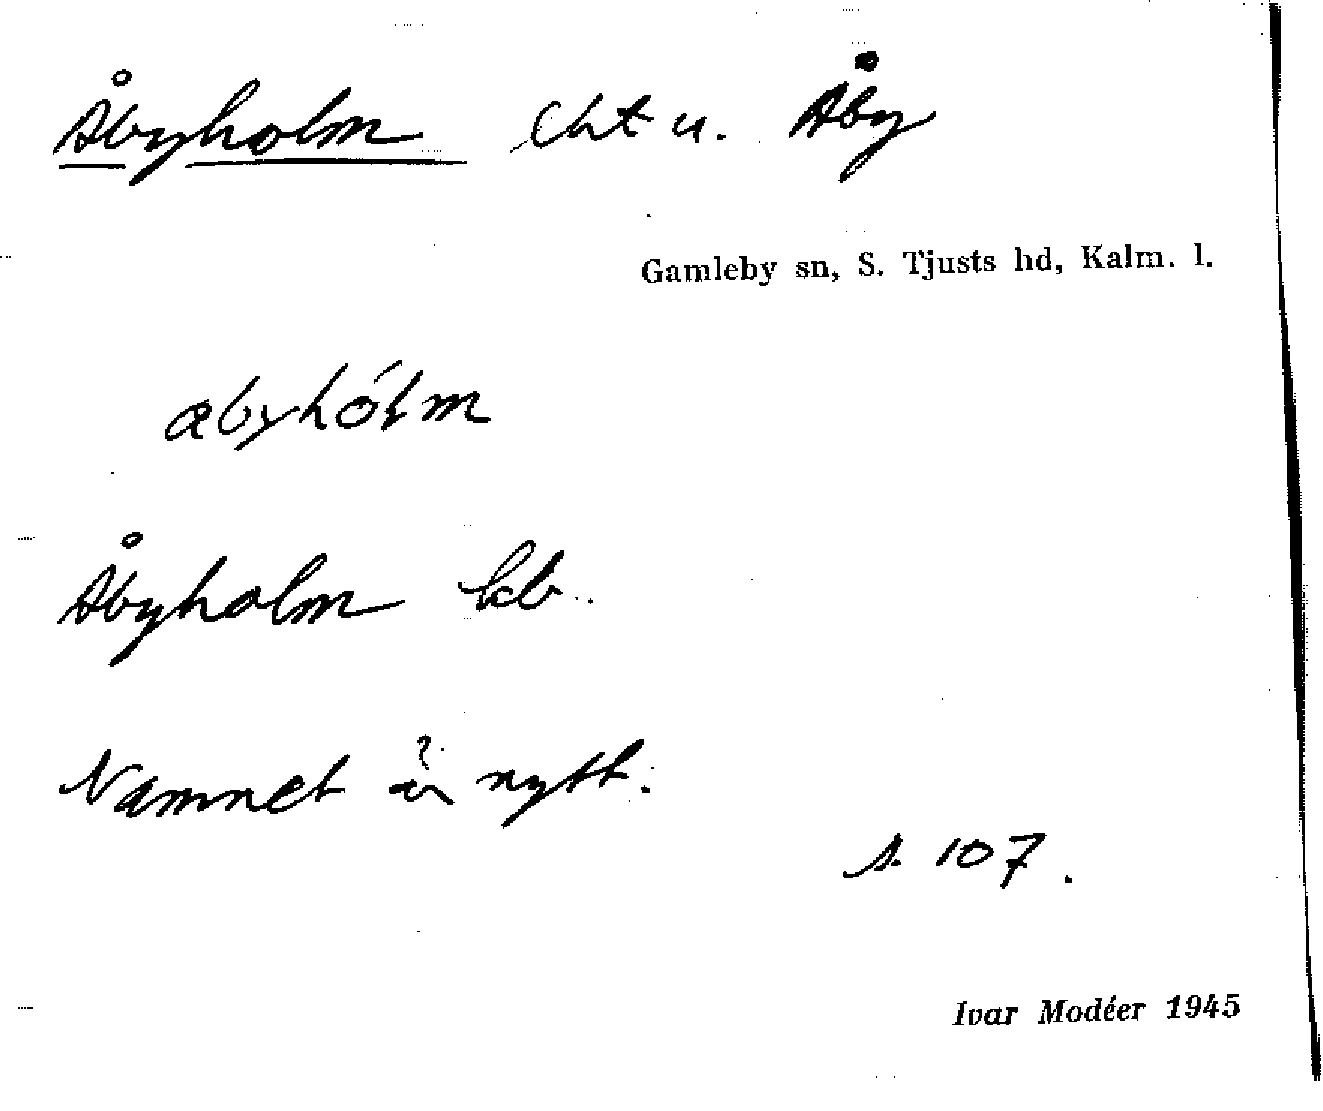 Åbyholm lht u. Åby
Gamleby sn, S. Tjusts hd, Kalm. l.
abyhólm
Åbyholm kb.
Namnet är nytt.
s. 107.
Ivar Modéer 1945